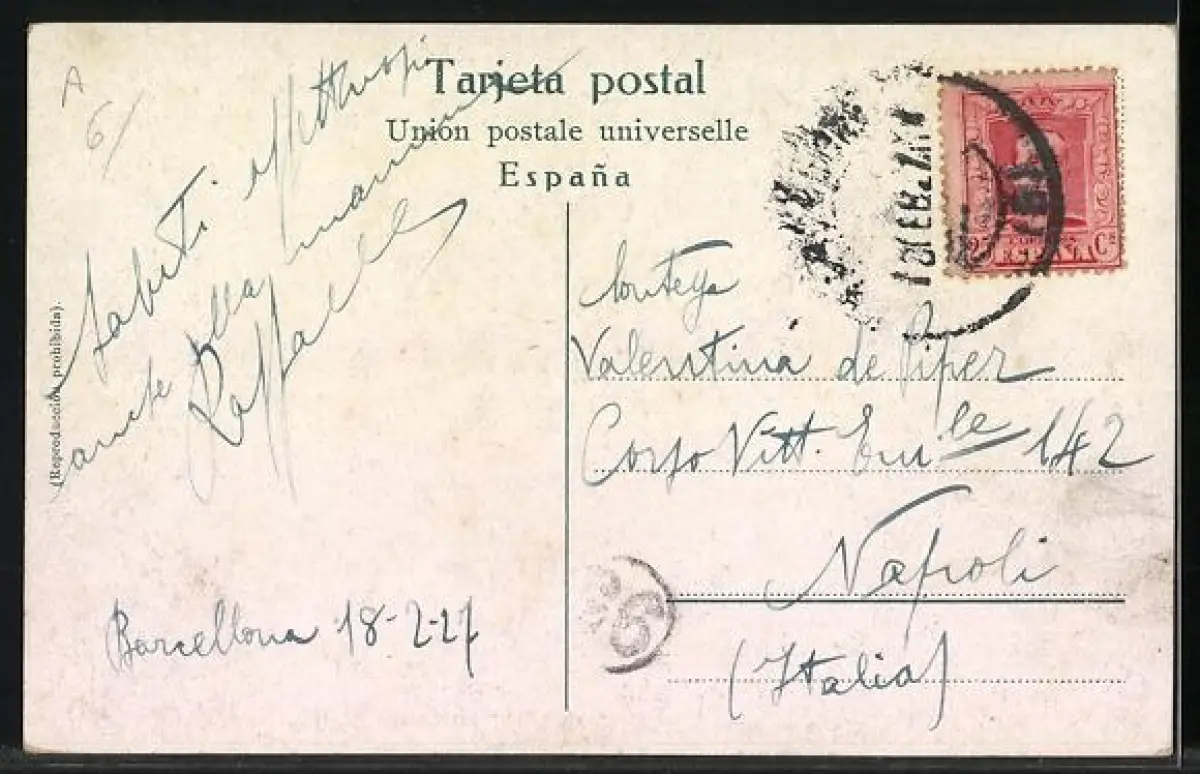 Tarjeta postal
Unión postale universelle
España
A
6/
Saluti affettuosi
anche alla mamma
Raffaele
Barcellona 18-2-27
(Reproducción prohibida).
Valentina de Piper
Corso Vitt. Em.le 142
Napoli
(Italia)
25 Cs
CORREOS
ESPAÑA
18 FEB. 27
6